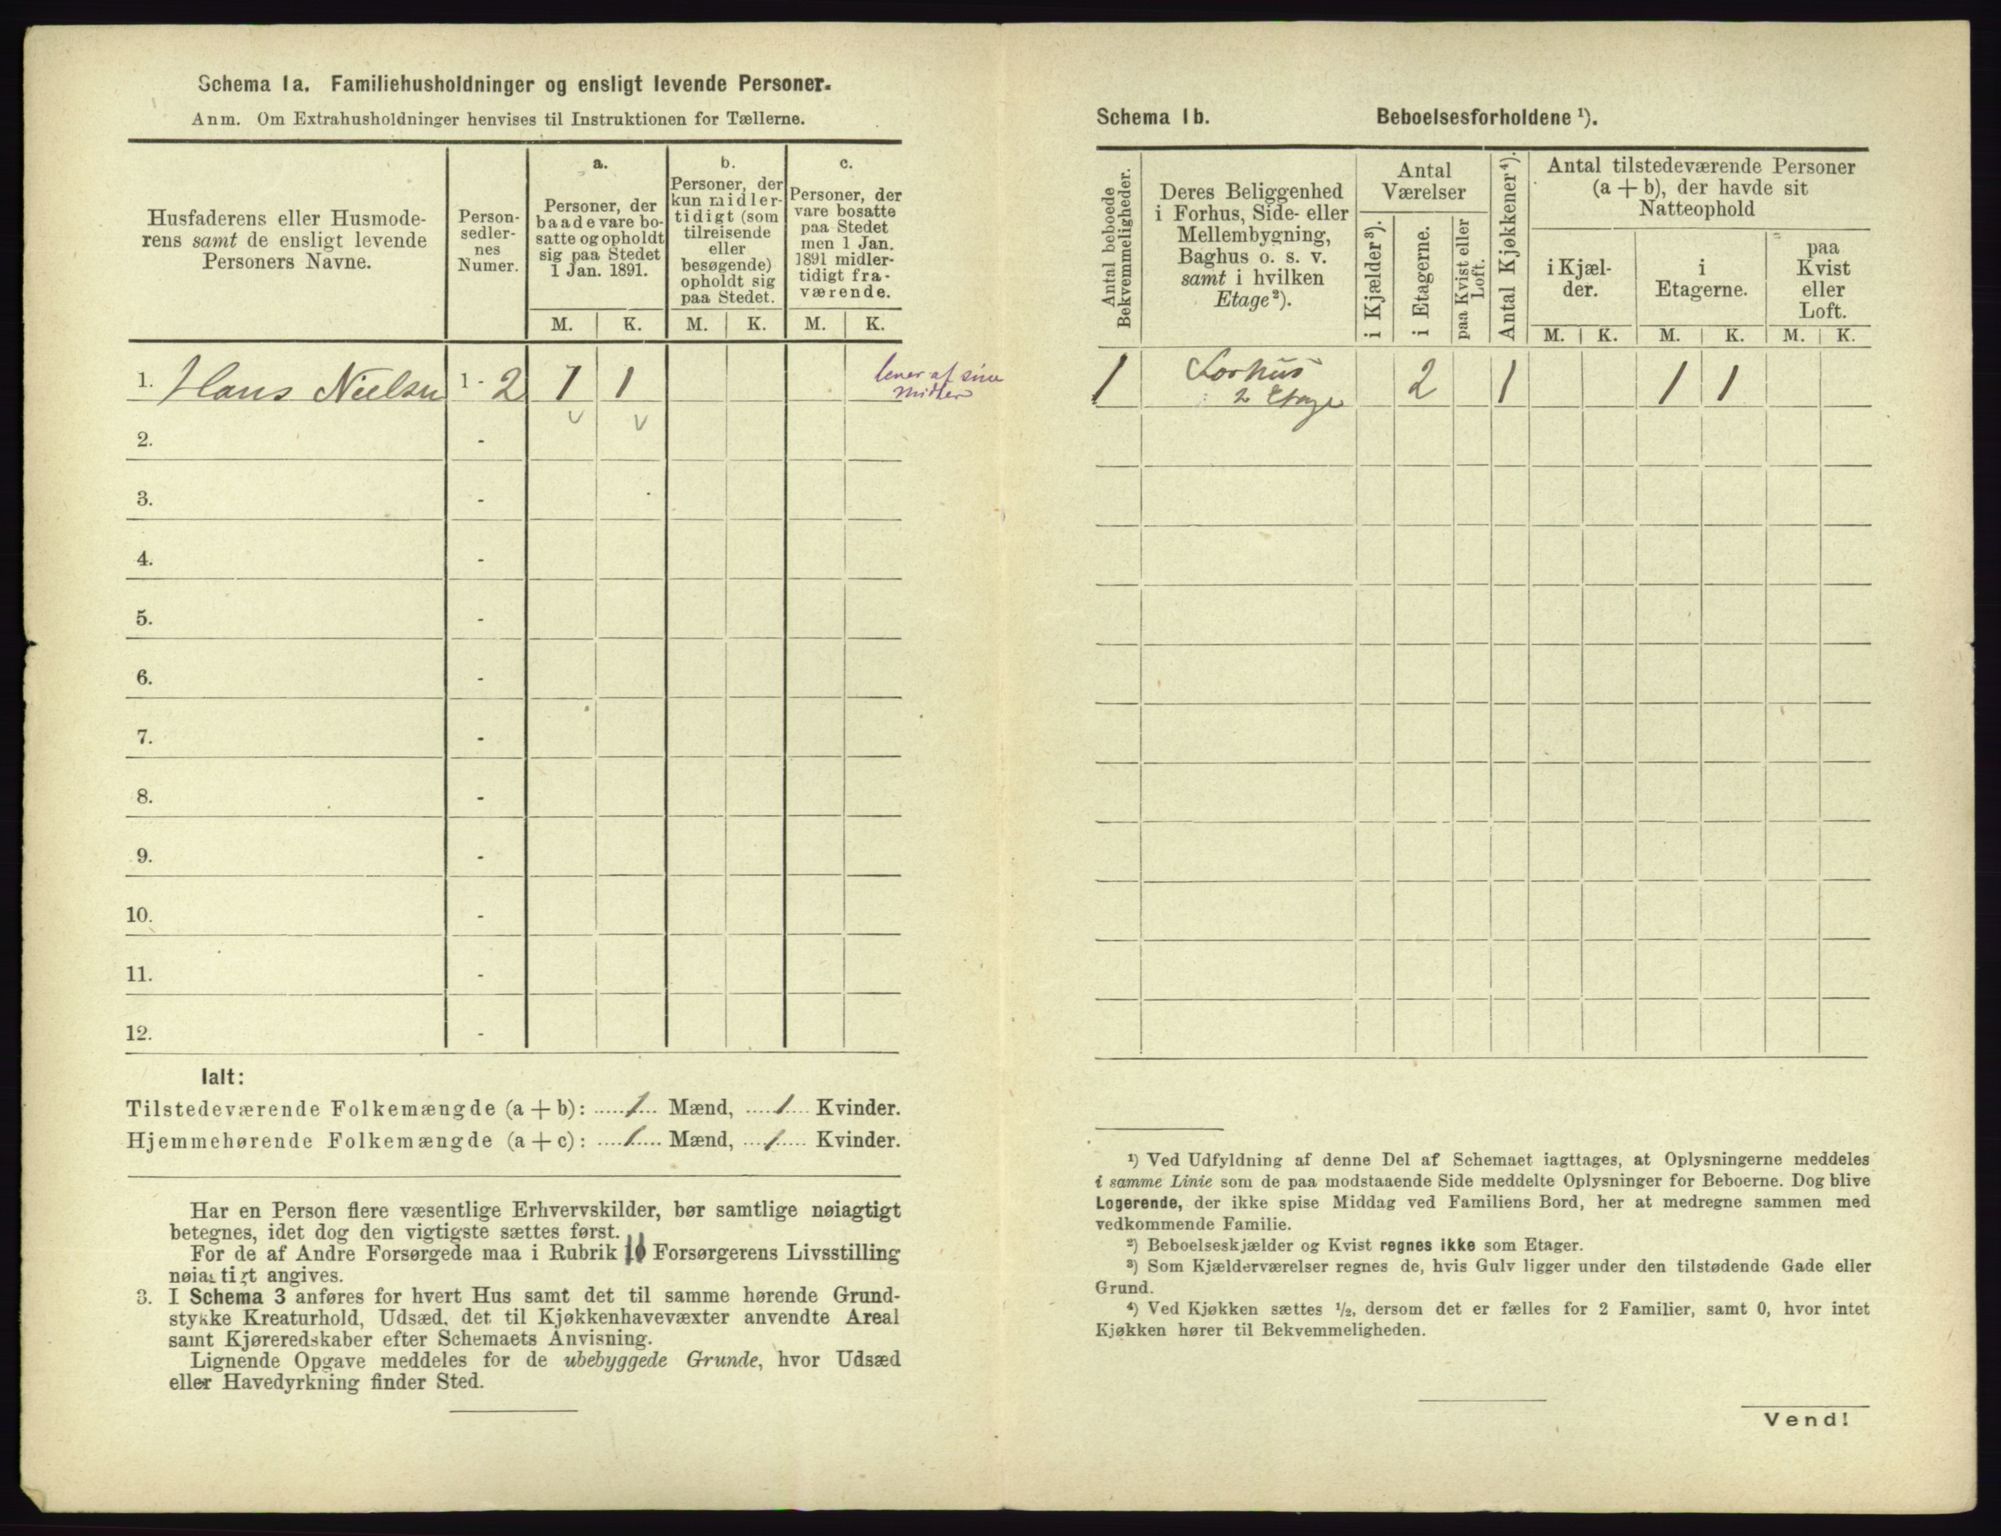 Schema 1a. Familiehusholdninger og ensligt levende Personer.
Anm. Om Extrahusholdninger henvises til Instruktionen for Tællerne.
Husfaderens eller Husmode-
rens samt de ensligt levende
Personers Navne.
Person-
sedler-
nes
Numer.
a.
Personer, der
baade vare bo-
satte og opholdt
sig paa Stedet
1 Jan. 1891.
M. K.
b.
Personer, der
kun midler-
tidigt (som
tilreisende
eller
besøgende)
opholdt sig
paa Stedet.
M. K.
c.
Personer, der
vare bosatte
paa Stedet
men 1 Jan.
1891 midler-
tidigt fra-
værende.
M. K.
1. Hans Nielsen 1 - 2 1 1
lever af sine
midler
2. -
3. -
4. -
5. -
6. -
7. -
8. -
9. -
10. -
11. -
12. -
Ialt:
Tilstedeværende Folkemængde (a + b): 1 Mænd, 1 Kvinder.
Hjemmehørende Folkemængde (a + c): 1 Mænd, 1 Kvinder.
Har en Person flere væsentlige Erhvervskilder, bør samtlige nøiagtigt
betegnes, idet dog den vigtigste sættes først.
For de af Andre Forsørgede maa i Rubrik 10 Forsørgerens Livsstilling
nøiagtigt angives.
3. I Schema 3 anføres for hvert Hus samt det til samme hørende Grund-
stykke Kreaturhold, Udsæd, det til Kjøkkenhavevæxter anvendte Areal
samt Kjøreredskaber efter Schemaets Anvisning.
Lignende Opgave meddeles for de ubebyggede Grunde, hvor Udsæd
eller Havedyrkning finder Sted.
Schema 1b. Beboelsesforholdene ¹).
Antal beboede
Bekvemmeligheder.
Deres Beliggenhed
i Forhus, Side- eller
Mellembygning,
Baghus o. s. v.
samt i hvilken
Etage²).
Antal
Værelser
i Kjælder³).
i Etagerne.
paa Kvist eller
Loft.
Antal Kjøkkener⁴).
Antal tilstedeværende Personer
(a + b), der havde sit
Natteophold
i Kjæl-
der.
i
Etagerne.
paa
Kvist
eller
Loft.
M. K. M. K. M. K.
1 Forhus 2 1 1 1
2 Etage
¹) Ved Udfyldning af denne Del af Schemaet iagttages, at Oplysningerne meddeles
i samme Linie som de paa modstaaende Side meddelte Oplysninger for Beboerne. Dog blive
Logerende, der ikke spise Middag ved Familiens Bord, her at medregne sammen med
vedkommende Familie.
²) Beboelseskjælder og Kvist regnes ikke som Etager.
³) Som Kjælderværelser regnes de, hvis Gulv ligger under den tilstødende Gade eller
Grund.
⁴) Ved Kjøkken sættes ½, dersom det er fælles for 2 Familier, samt 0, hvor intet
Kjøkken hører til Bekvemmeligheden.
Vend!